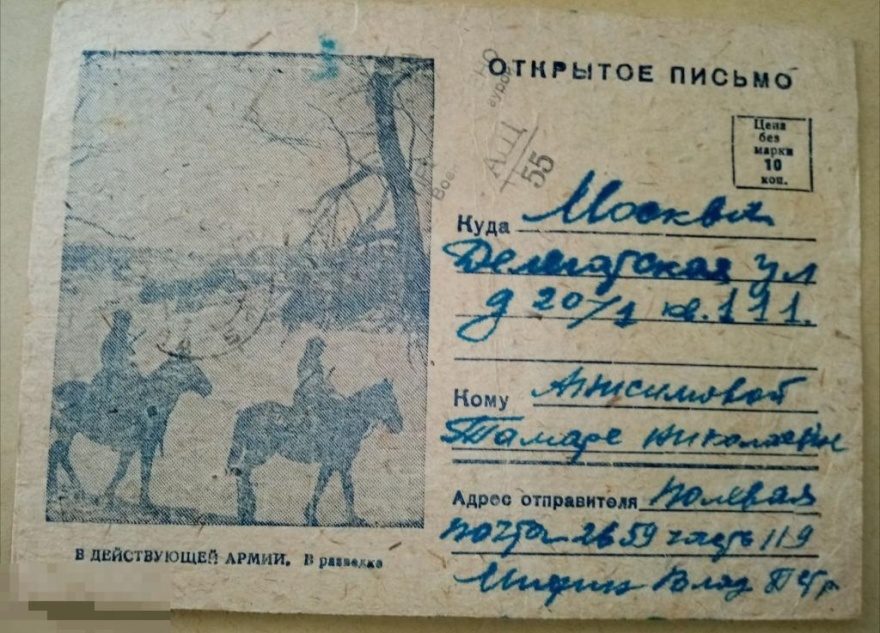 ОТКРЫТОЕ ПИСЬМО
АЦ
55
Цена
без
марки
10
коп.
Куда Москва
Делегатская ул
д 20/1 кв. 111.
Кому Анисимовой
Тамаре Николаевне
Адрес отправителя Полевая
почта 2659 часть 119
Влад Петр
В ДЕЙСТВУЮЩЕЙ АРМИИ. В разведке